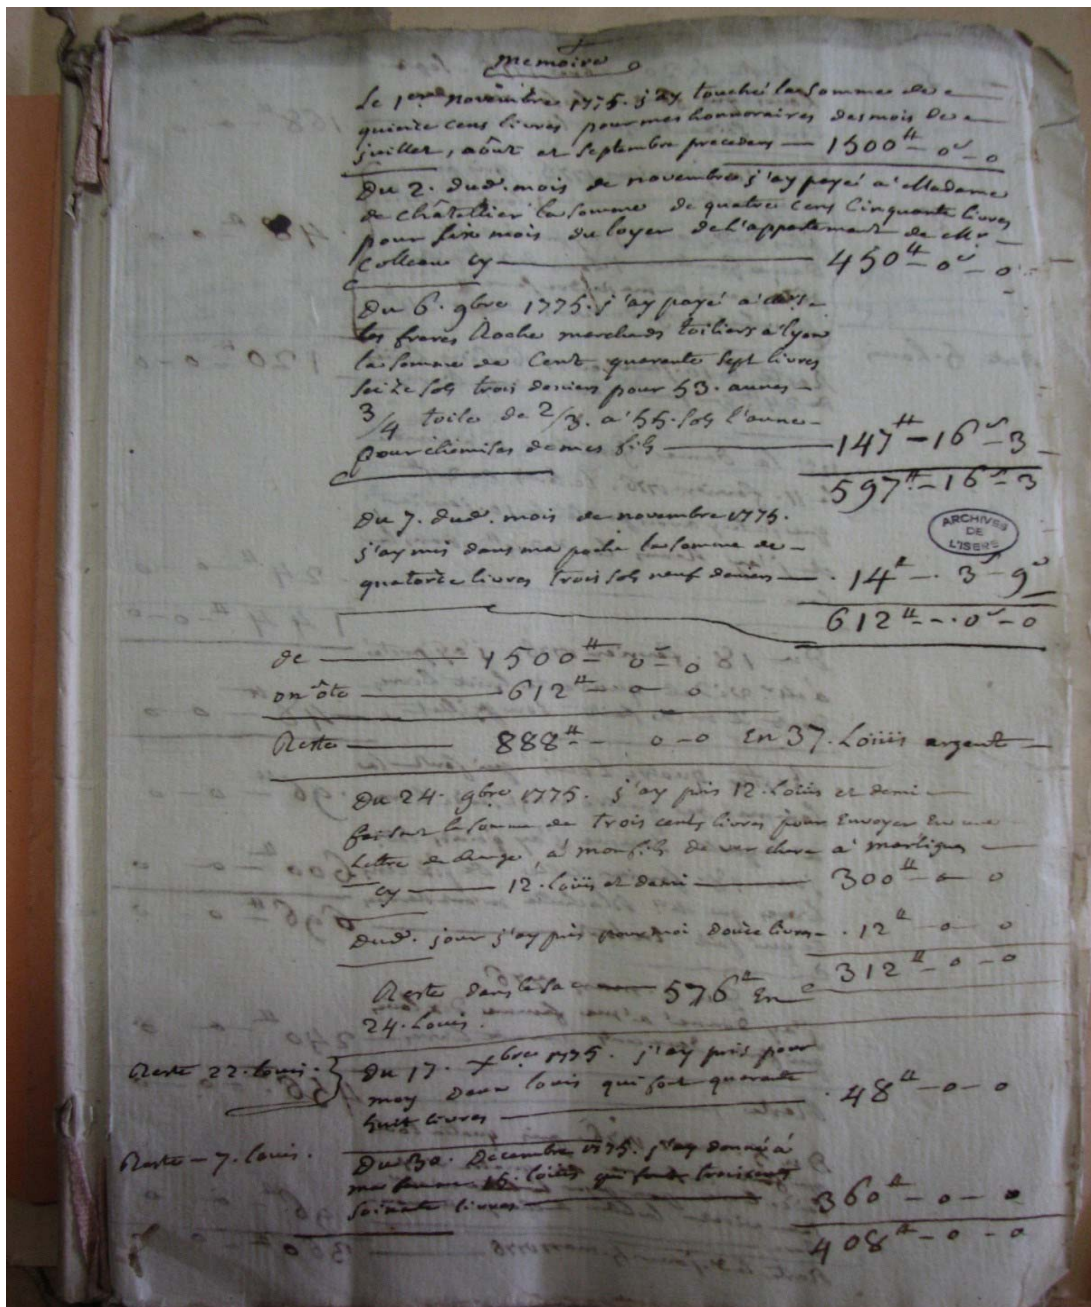 Memoire
Le 1er novembre 1775. j'ay touché la somme de
quinze cens livres pour mes honnoraires des mois de
juillet, août et septembre précédens — 1500₶ - o s - o
Du 2. dud. mois de novembre j'ay payé a Madame
de châtellier la somme de quatre cens Cinquante livres
pour six mois du loyer de l'appartement de Mr
Colleau cy — 450₶ - o s - o
Du 6. 9bre 1775. j'ay payé a
les freres Roche marchands toiliers a lyon
la somme de Cent quarante sept livres
seize sols trois deniers pour 53. aunes
3/4 toile de 2/3. a 55. sols l'aune
pour chemises de mes fils — 147₶ - 16 s - 3
597₶ - 16 s - 3
ARCHIVES
DE
L'ISERE
Du 7. dud. mois de novembre 1775.
j'ay mis dans ma poche la somme de
quatorze livres trois sols neuf deniers — 14₶ - 3 s - 9 d
612₶ - o s - o
de — 1500₶ - o s - o
on ôte — 612₶ - o - o
Reste — 888₶ - o - o En 37. Loüis argent
Du 24. 9bre 1775. j'ay pris 12. Loüis et demi
faisant la somme de trois cents livres pour Envoyer En une
Lettre de change, a mon fils de a martigues
cy — 12. Loüis et demi — 300₶ - o - o
Dud. jour j'ay pris pour moi douze livres - 12₶ - o - o
312₶ - o - o
Reste dans le sac — 576₶ En
24. Louis.
Reste 22. louis. Du 17. Xbre 1775. j'ay pris pour
moy deux louis qui font quarante
huit livres — 48₶ - o - o
Reste - 7. louis. Du 30. Decembre 1775. j'ay donné à
ma femme 15. loüis qui font trois cents
soixante livres — 360₶ - o - o
408₶ - o - o